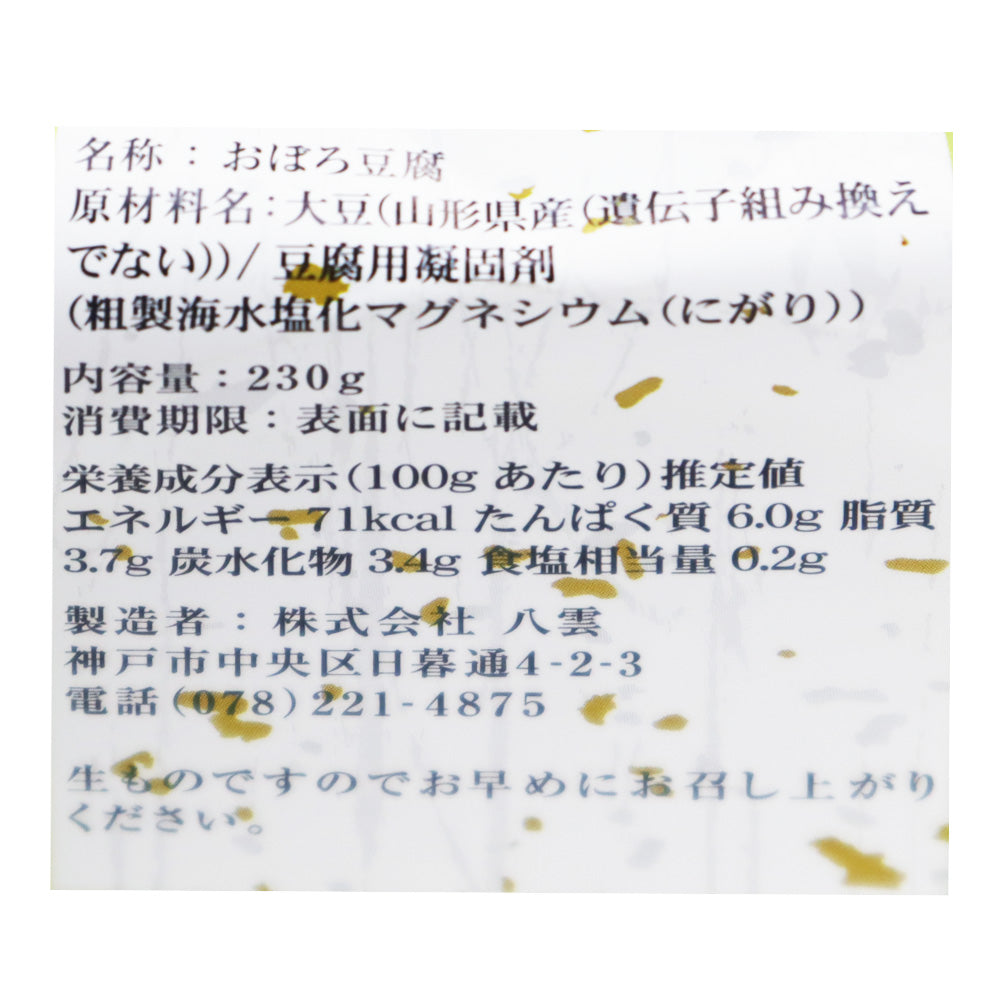 名称：おぼろ豆腐
原材料名：大豆(山形県産(遺伝子組み換え
でない))/ 豆腐用凝固剤
(粗製海水塩化マグネシウム(にがり))
内容量：230g
消費期限：表面に記載
栄養成分表示(100g あたり)推定値
エネルギー 71kcal たんぱく質 6.0g 脂質
3.7g 炭水化物 3.4g 食塩相当量 0.2g
製造者：株式会社 八雲
神戸市中央区日暮通4-2-3
電話(078)221-4875
生ものですのでお早めにお召し上がり
ください。